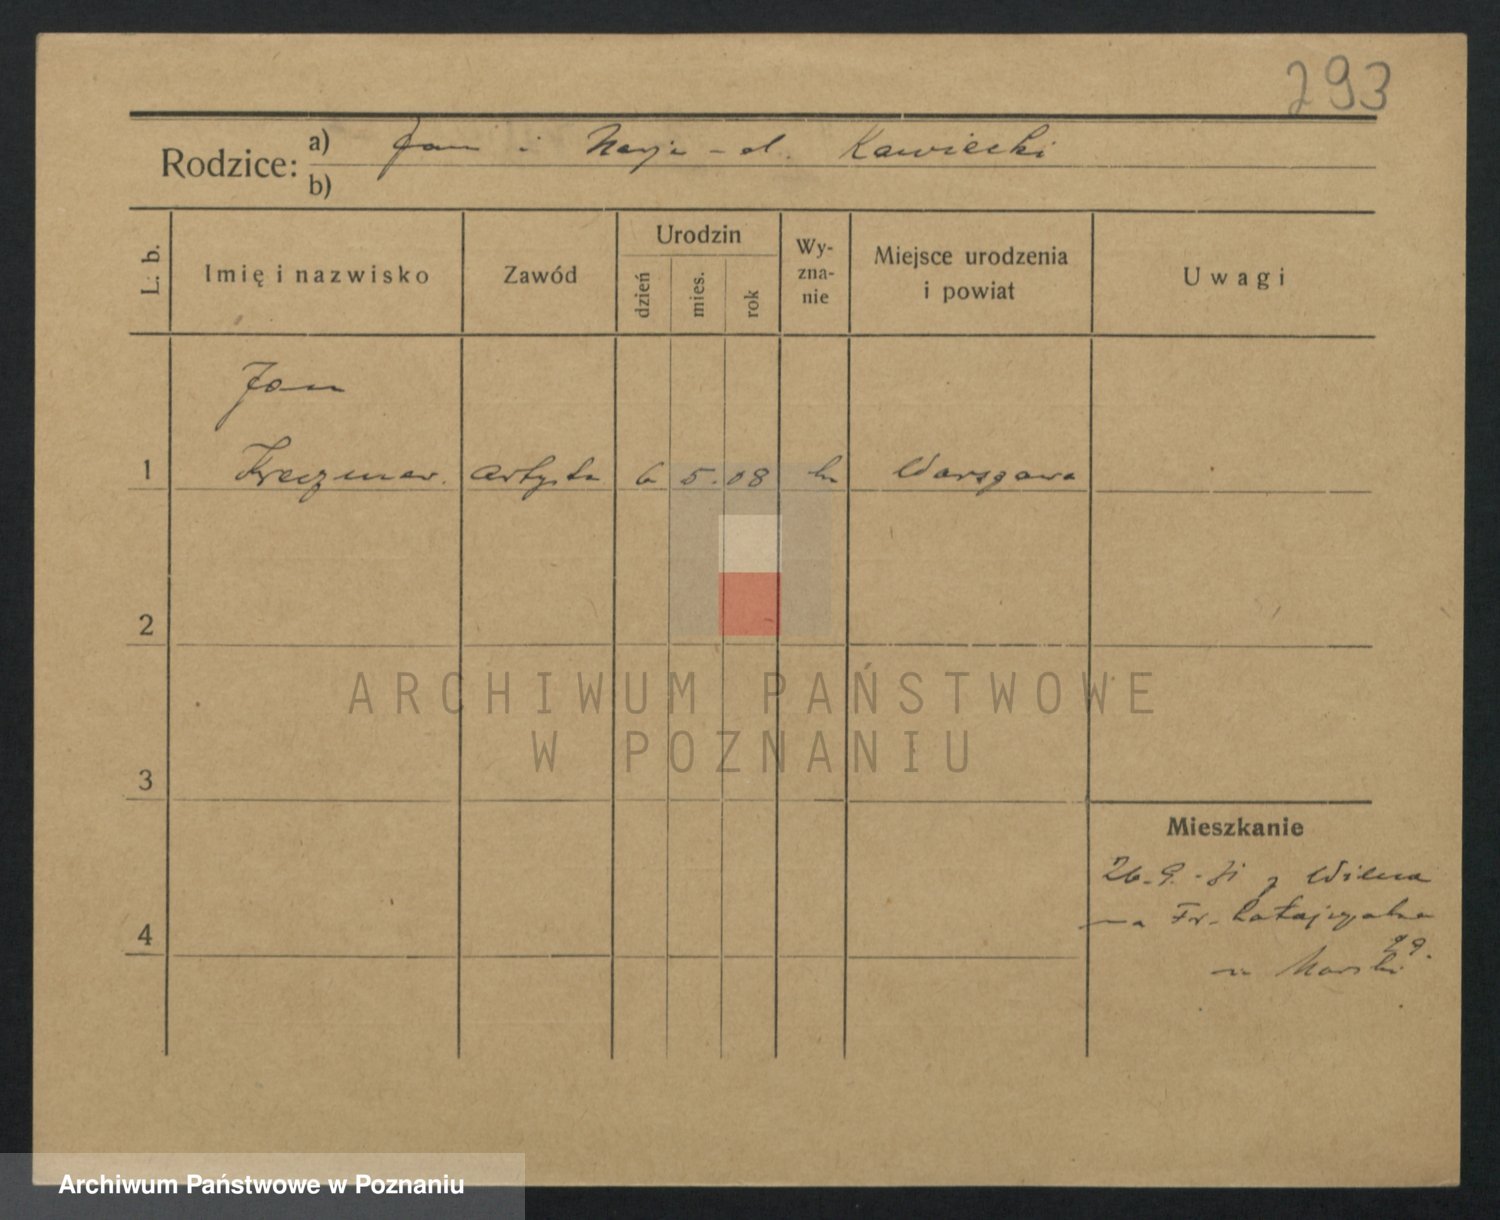 293
Rodzice: a) Jan i Marja - d. Kawiecki
b)
L. b. Imię i nazwisko Zawód Urodzin dzień mies. rok Wy-zna-nie Miejsce urodzenia i powiat Uwagi
Jan
1 Kreczmar. artysta 6 5. 08 Warszawa
2
3
4
ARCHIWUM PAŃSTWOWE
W POZNANIU
Mieszkanie
26. 9. 31 z Wilna
na Fr. Ratajczaka
29.
Archiwum Państwowe w Poznaniu